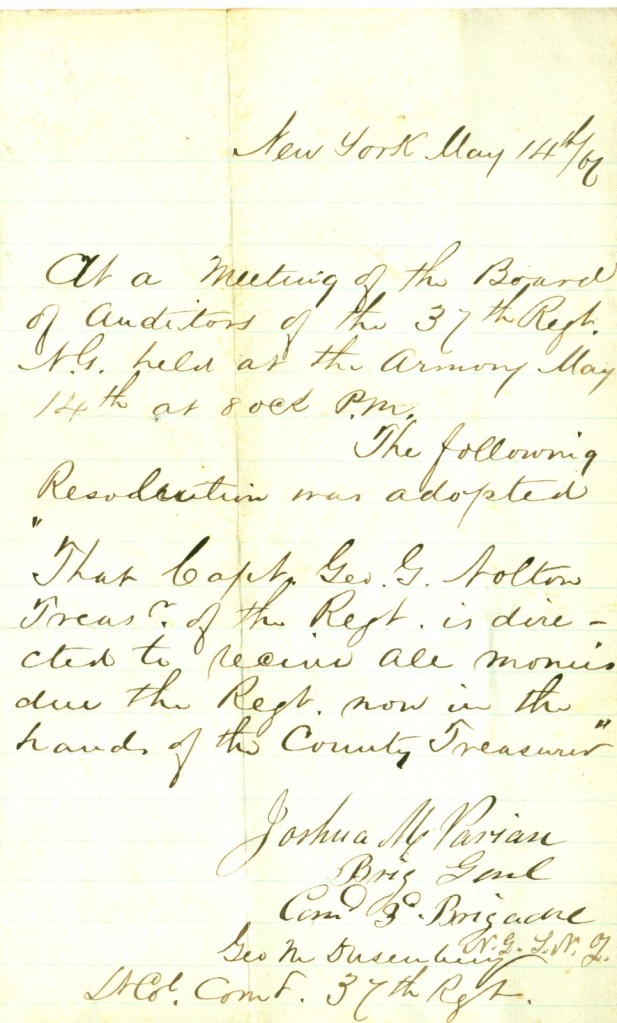 New York May 14th/67
At a Meeting of the Board
of Auditors of the 37th Regt.
N.G. held at the Armory May
14th at 8 ock P.M.
The following
Resolution was adopted
"That Capt. Geo. G. Nolton
Treasr. of the Regt. is dire-
cted to receive all monies
due the Regt. now in the
hands of the County Treasurer"
Joshua M Varian
Brig Genl
Comd 3d. Brigade
N.G.S.N.Y.
Geo M Dusenbury
Lt Col. Comt. 37th Regt.